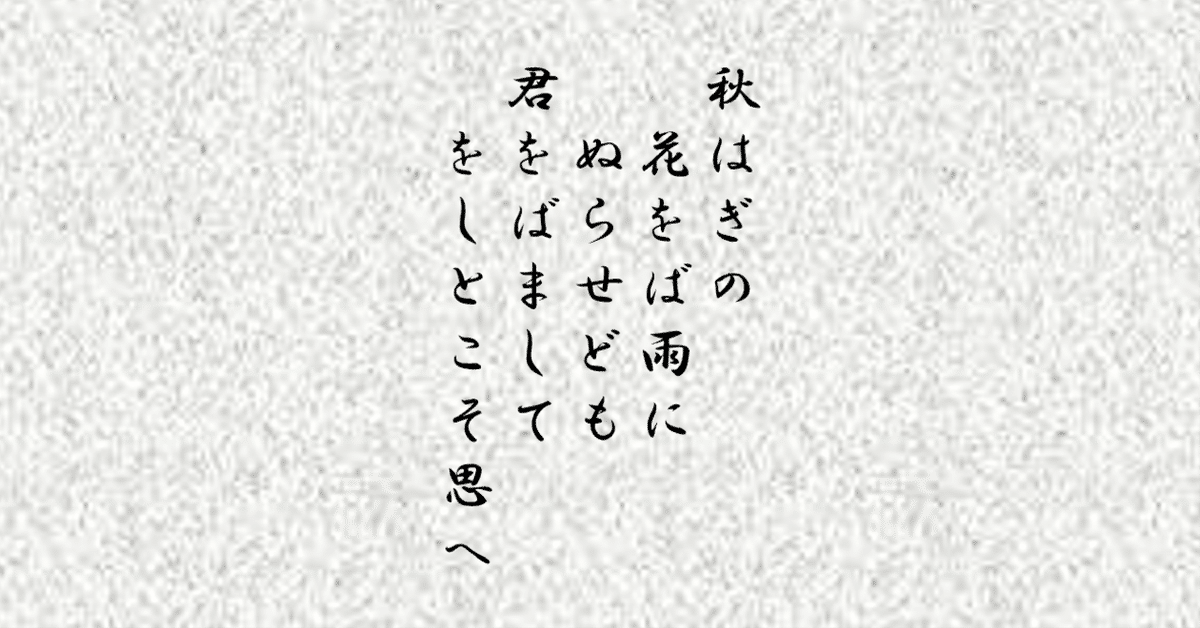 秋はぎの
花をば雨に
ぬらせども
君をばまして
をしとこそ思へ